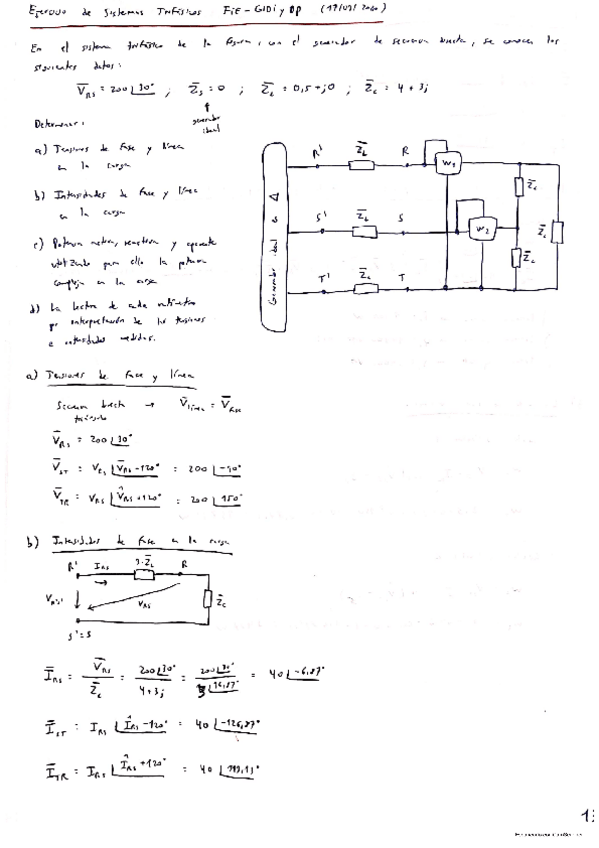 Ejercicio de Sistemas Trifásicos FiE - GIDi y DP (17/03/2020)
En el sistema trifásico de la figura, con el generador de secuencia directa, se conocen los
siguientes datos:
V̄RS = 200 |30° ; Z̄S = 0 ; Z̄L = 0,5 + j0 ; Z̄c = 4 + 3j
generador
ideal
Determinar:
a) Tensiones de fase y línea
en la carga
b) Intensidades de fase y línea
en la carga
c) Potencia activa, reactiva y aparente
utilizando para ello la potencia
compleja en la carga
d) La lectura de cada vatímetro
interpretación de las tensiones
e intensidades medidas.
Generador ideal
R' Z̄L R W1
S' Z̄L S W2
T' Z̄L T
Z̄c
Z̄c
Z̄c
a) Tensiones de fase y línea
Secuencia directa → V̄línea = V̄fase
triángulo
V̄RS = 200 |30°
V̄ST = VRS |V̂RS - 120° = 200 |-90°
V̄TR = VRS |V̂RS + 120° = 200 |150°
b) Intensidades de fase en la carga
R' IRS 3·Z̄L R
VRS Z̄c
S' = S
ĪRS = V̄RS / Z̄c = 200|30° / 4+3j = 200|30° / 5|36,87° = 40 |-6,87°
ĪST = IRS |ÎRS - 120° = 40 |-126,87°
ĪTR = IRS |ÎRS + 120° = 40 |113,13°